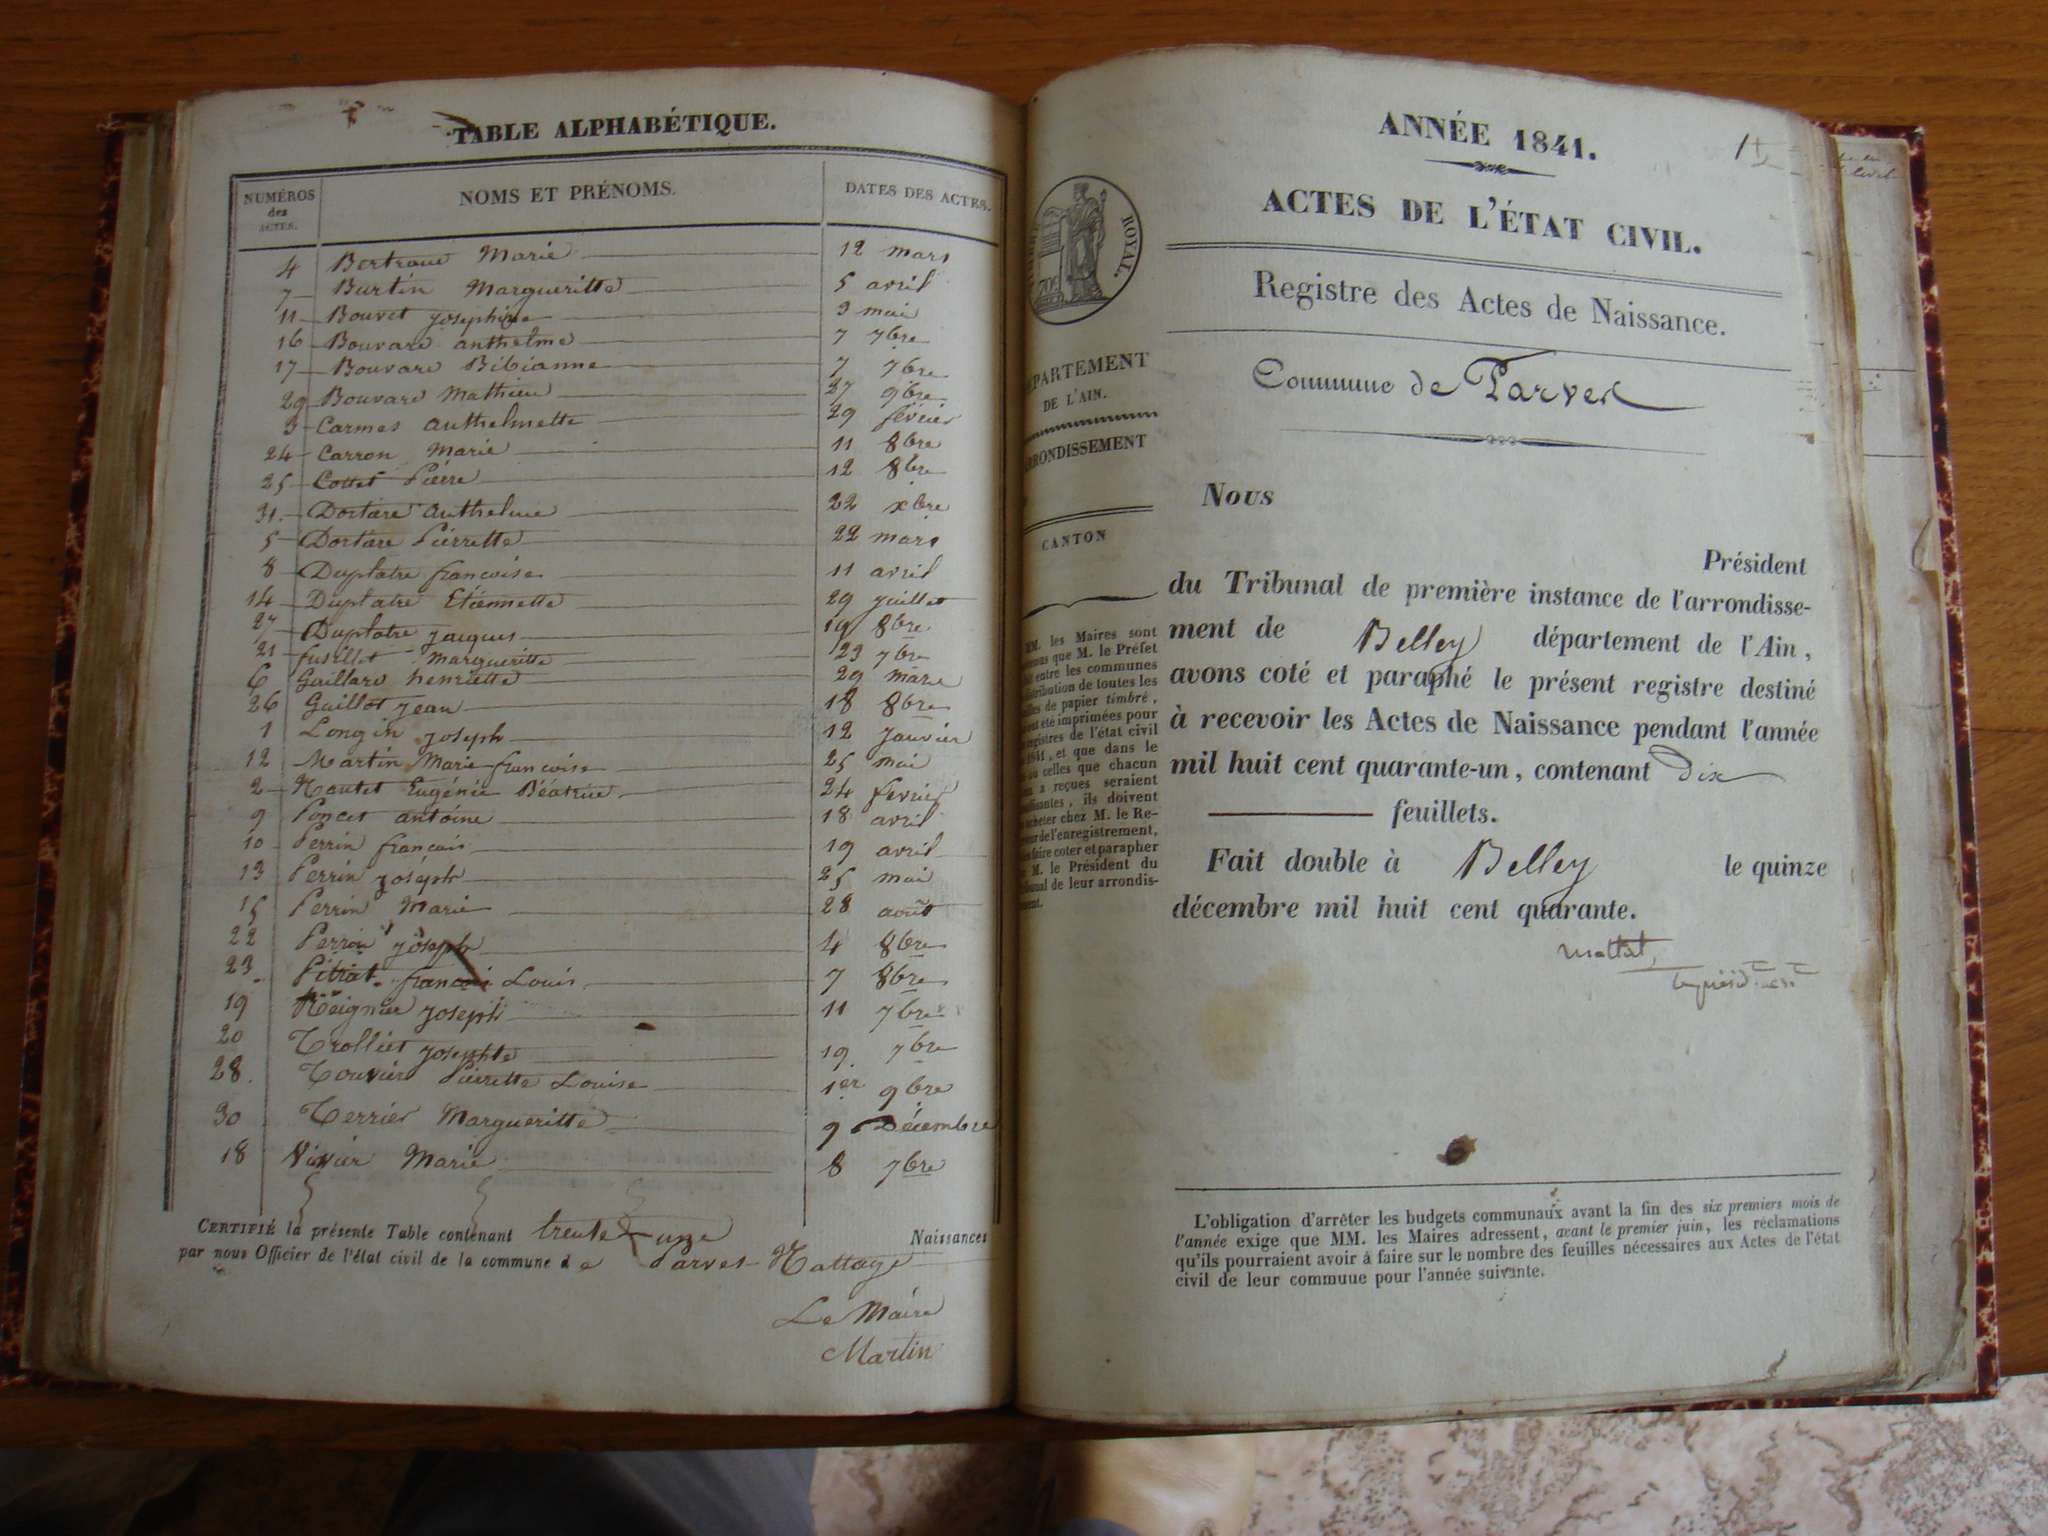 TABLE ALPHABÉTIQUE.
NUMÉROS des ACTES. NOMS ET PRÉNOMS. DATES DES ACTES.
4 Bertrand Marie 12 mars
7 Burtin Margueritte 5 avril
11 Bouvet Josephine 3 mai
16 Bouvard anthelme 7 7bre
17 Bouvard Bibianne 7 7bre
29 Bouvard Mathieu 27 9bre
3 Carmes anthelmette 29 février
24 Carron Marie 11 8bre
25 Cottet Pierre 12 8bre
31 Anthelme 22 xbre
5 Pierrette 22 mars
8 Duplatre francoise 11 avril
14 Duplatre Etiennette 29 Juillet
27 Duplatre Jacques 19 8bre
21 fusillet Margueritte 23 7bre
6 Guillard henriette 29 mars
26 Guillot Jean 18 8bre
1 Longin Joseph 12 Janvier
12 Martin Marie francoise 25 mai
2 Eugénie Béatrice 24 fevrier
9 Poncet antoine 18 avril
10 Perrin francois 19 avril
13 Perrin Joseph 25 mai
15 Perrin Marie 28 août
22 Perrin Joseph 4 8bre
23 Pitrat francois Louis 7 8bre
19 Reignier Joseph 11 7bre
20 Trolliet Josephte 19 7bre
28. Touvier Pierrette Louise 1er 9bre
30 Terrier Margueritte 9 Décembre
18 Vivier Marie 8 7bre
CERTIFIÉ la présente Table contenant trente-une Naissances
par nous Officier de l'état civil de la commune de Parves Nattage
Le Maire
Martin
1
ANNÉE 1841.
ACTES DE L'ÉTAT CIVIL.
Registre des Actes de Naissance.
Commune de Parves
ROYAL.
DE L'AIN.
CANTON
MM. les Maires sont
que M. le Préfet
entre les communes
distribution de toutes les
de papier timbré,
été imprimées pour
registres de l'état civil
1841, et que dans le
celles que chacun
a reçues seraient
, ils doivent
acheter chez M. le Re-
de l'enregistrement,
faire coter et parapher
M. le Président du
de leur arrondis-
Nous
Président
du Tribunal de première instance de l'arrondisse-
ment de Belley département de l'Ain,
avons coté et paraphé le présent registre destiné
à recevoir les Actes de Naissance pendant l'année
mil huit cent quarante-un, contenant dix
feuillets.
Fait double à Belley le quinze
décembre mil huit cent quarante.
L'obligation d'arrêter les budgets communaux avant la fin des six premiers mois de
l'année exige que MM. les Maires adressent, avant le premier juin, les réclamations
qu'ils pourraient avoir à faire sur le nombre des feuilles nécessaires aux Actes de l'état
civil de leur commune pour l'année suivante.